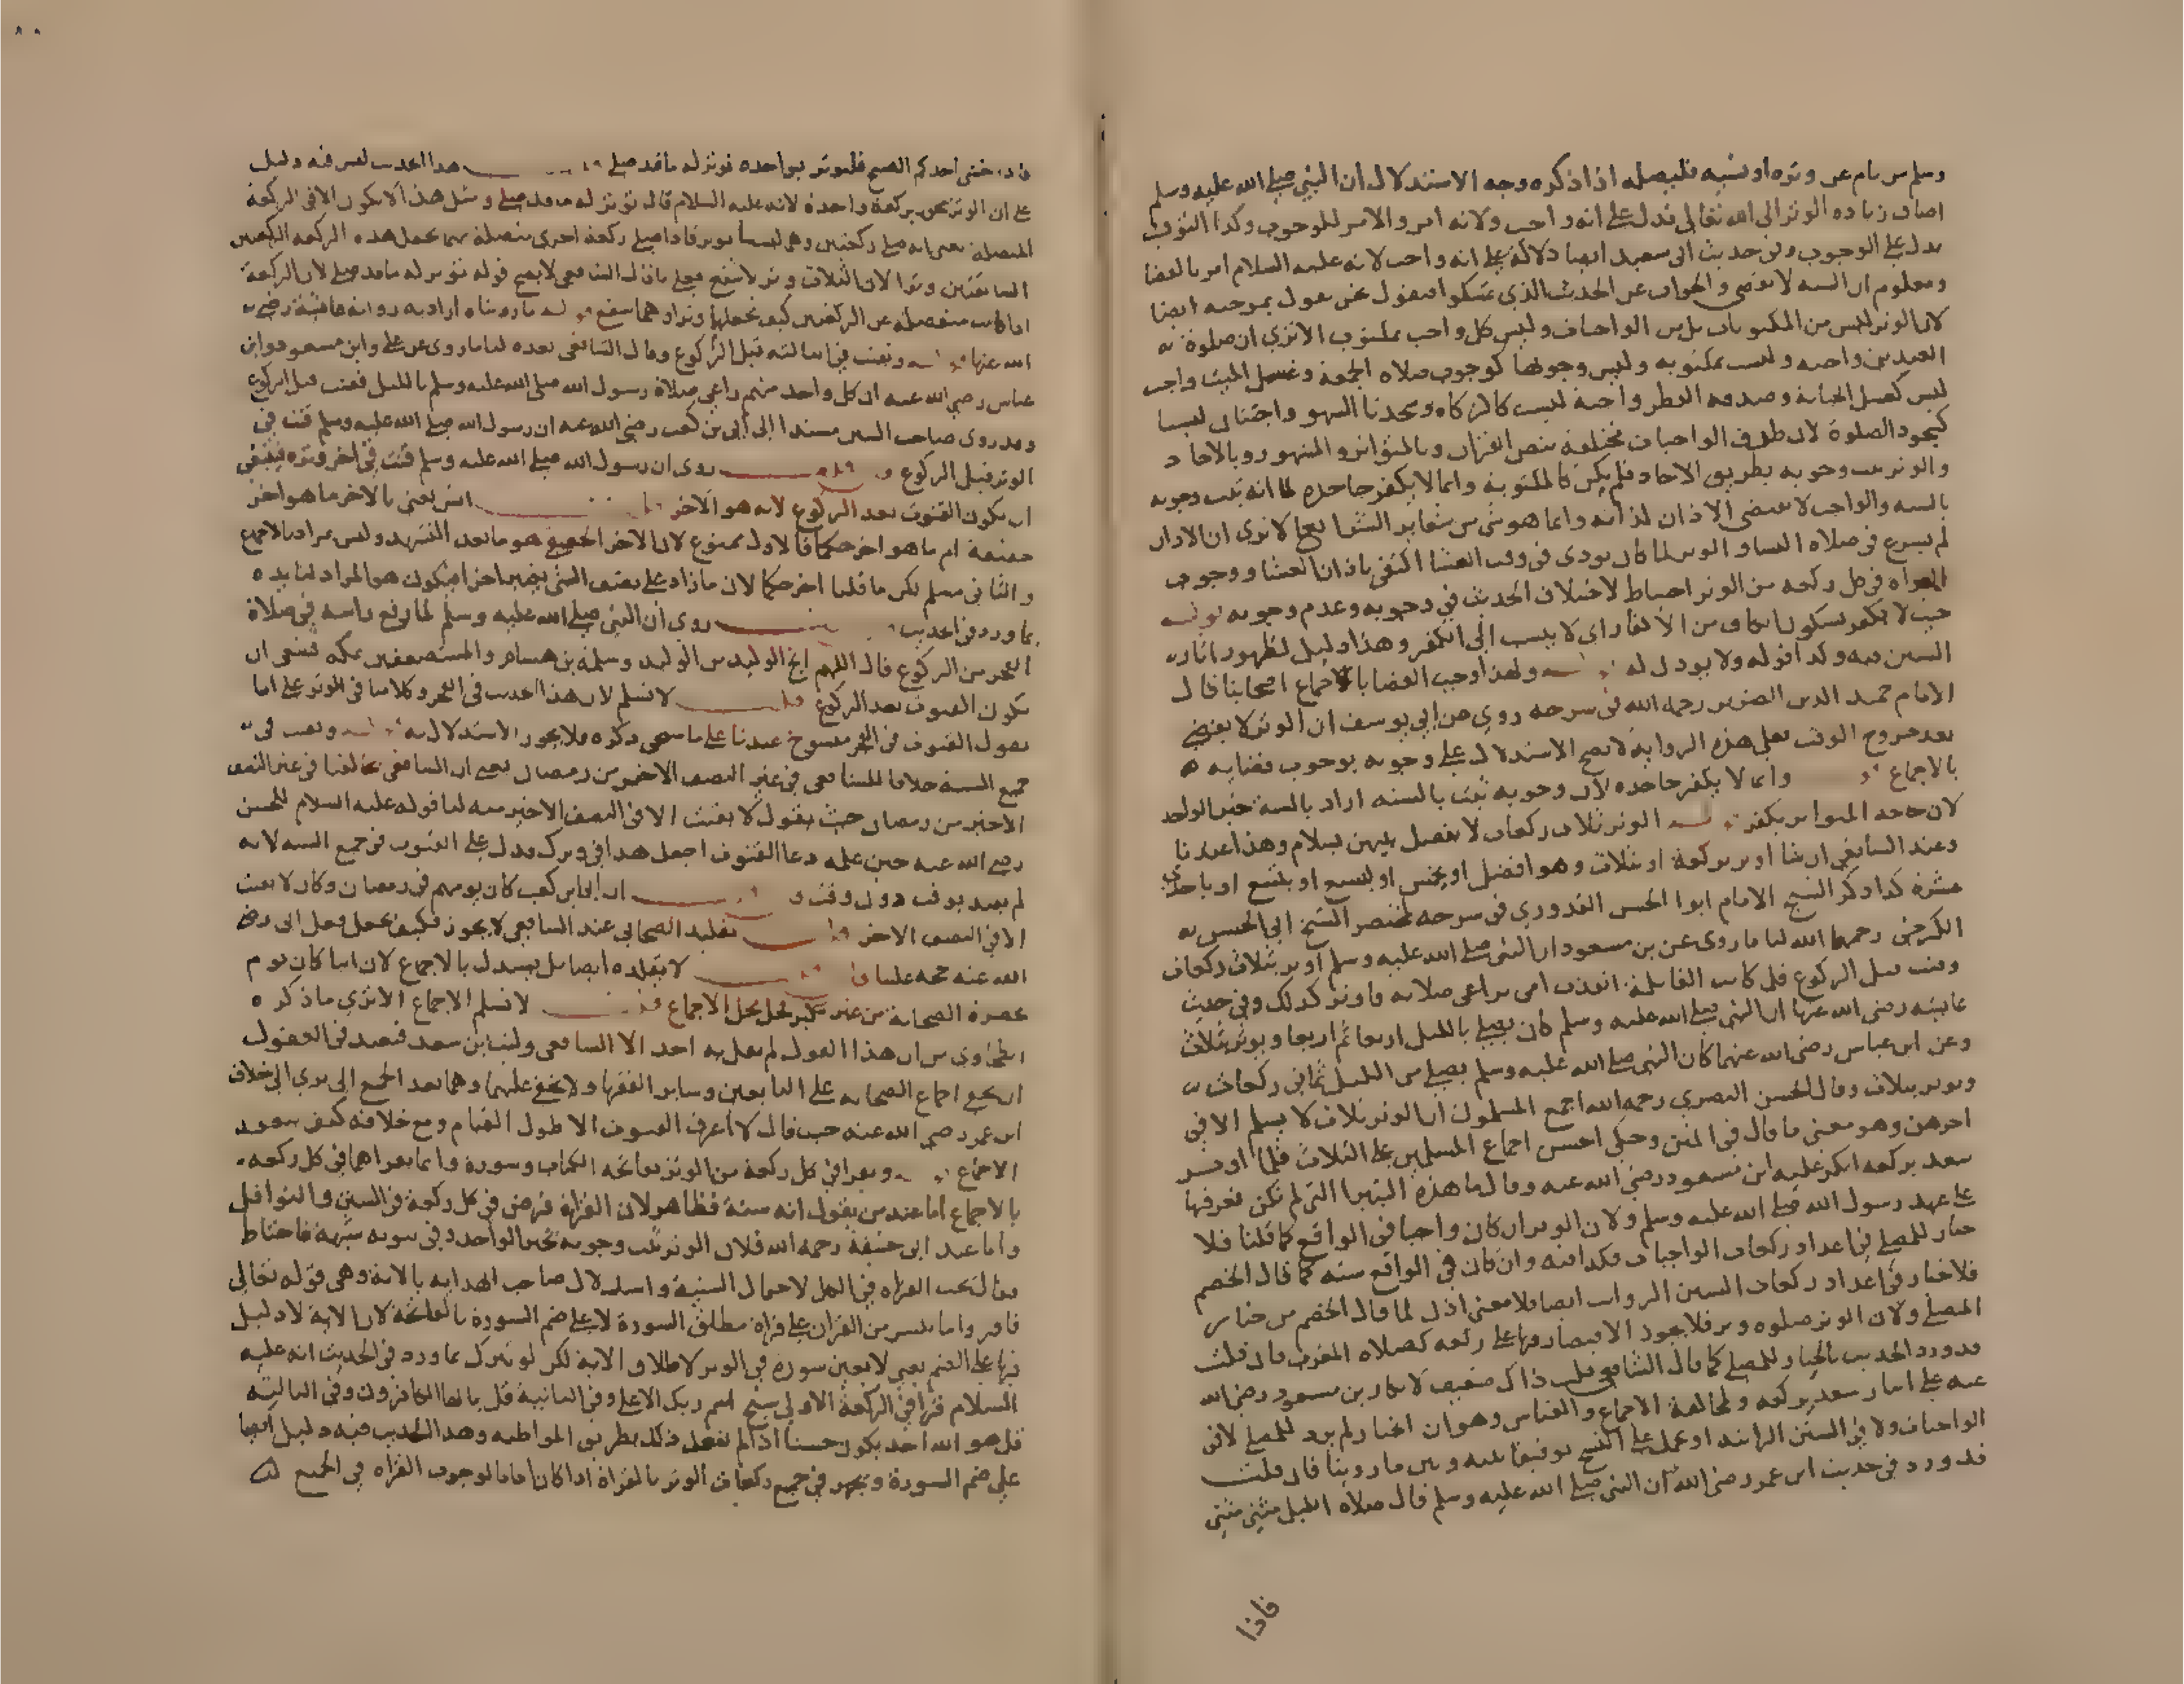 وسلم من نام عن وتره او نسيه فليصله اذا ذكره وجه الاستدلال ان النبي صلى الله عليه وسلم
اضاف زيادة الوتر الى الله تعالى فدل على انه واجب ولانه امر والامر للوجوب وكذا التوقيت
يدل على الوجوب وفي حديث ابى سعيد ايضا دلالة على انه واجب لانه عليه السلام امر بالقضا
ومعلوم ان السنة لا تقضى والجواب عن الحديث الذي تمسكوا فنقول نحن نقول بموجبه ايضا
لان الوتر ليس من المكتوبات بل من الواجبات وليس كل واجب بمكتوب الا ترى ان صلوة
العيدين واجبة وليست بمكتوبة وليس وجوبها كوجوب صلاة الجمعة وغسل الميت واجب
ليس كغسل الجنابة وصدقة الفطر واجبة ليست كالزكاه وسجدتا السهو واجبتان ليستا
كسجود الصلوة لان طرق الواجبات مختلفة بنص القران وبالمتواتر والمشهور وبالاحاد
والوتر ثبت وجوبه بطريق الاحاد فلم يكن كالمكتوبة وانما لا يكفر جاحده لما انه ثبت وجوبه
بالسنة والواجب لا يقتضي الاذان لذاته وانما هو شي من شعاير الشرايع الا ترى ان الاذان
لم يشرع في صلاه النساء والوتر لما كان يودى في وقت العشا اكتفى باذان العشا ووجوب
القراه في كل ركعه من الوتر احتياط لاختلاف الحديث في وجوبه وعدم وجوبه قوله
حيث لا يكفر بسكون الكاف من الاكفار اى لا ينسب الى الكفر وهذا دليل لظهور اثار
السنن فيه وكذا قوله ولا يوذن له ولهذا وجب القضا بالاجماع اصحابنا قال
الامام حميد الدين الضرير رحمه الله في شرحه روي عن ابي يوسف ان الوتر لا يقضى
بعد خروج الوقت فعلى هذه الرواية لا يصح الاستدلال على وجوبه بوجوب قضايه
بالاجماع وانما لا يكفر جاحده لان وجوبه ثبت بالسنه اراد بالسنة خبر الواحد
لان جاحد المتواتر يكفر الوتر ثلاث ركعات لا يفصل بينهن بسلام وهذا عندنا
وعند الشافعي ان شا اوتر بركعة او بثلاث وهو افضل او بخمس او بسبع او بتسع او باحدى
عشرة كذا ذكر الشيخ الامام ابوا الحسن القدوري في شرحه لمختصر الشيخ ابي الحسن
الكرخي رحمهما الله لنا ما روى عن بن مسعود ان النبى صلى الله عليه وسلم اوتر بثلاث ركعات
وقنت قبل الركوع فلما كانت القابلة انفذت امى تراعى صلاته فاوتر كذلك وفي حديث
عايشه رضى الله عنها ان النبي صلى الله عليه وسلم كان يصلي بالليل اربعا ثم اربعا ويوتر بثلاث
وعن ابن عباس رضى الله عنهما كان النبي صلى الله عليه وسلم يصلي من الليل ثماني ركعات
ويوتر بثلاث وقال الحسن البصري رحمه الله اجمع المسلمون ان الوتر ثلاث لا يسلم الا في
اخرهن وهو معنى ما قال في المتن وحكى الحسن اجماع المسلمين على الثلاث فلما اوتر
سعد بركعه انكر عليه ابن مسعود رضى الله عنه وقال ما هذه البتيرا التي لم تكن نعرفها
على عهد رسول الله صلى الله عليه وسلم ولان الوتر ان كان واجبا في الواقع كما قلنا فلا
خيار للمصلي في اعداد ركعات الواجبات فكذا فيه وان كان في الواقع سنه كما قال الخصم
فلا خيار في اعداد ركعات السنن الرواتب ايضا فلا معنى اذن لما قال الخصم من خيار
المصلي ولان الوتر صلوه وتر فلا يجوز الاقتصار فيها على ركعه كصلاه المغرب فان قلت
قد ورد الحديث بالخيار للمصلي كما قال الشافعي قلت ذاك ضعيف لانكار بن مسعود رضي الله
عنه على ايتار سعد بركعه ولمخالفة الاجماع والقياس وهو ان الخيار لم يرد للمصلي لا في
الواجبات ولا في السنن الراتبه او يحمل على النسخ توفيقا بينه وبين ما روينا فان قلت
قد ورد في حديث ابن عمر رضى الله ان النبى صلى الله عليه وسلم قال صلاه الليل مثنى مثنى
فاذا
فاذا خشى احدكم الصبح فليوتر بواحده توتر له ما قد صلى هذا الحديث ليس فيه دليل
على ان الوتر يجوز بركعة واحدة لانه عليه السلام قال توتر له ما قد صلى ومثل هذا لا يكون الا في الركعة
المتصلة يعني انه صلى ركعتين وهى ليستا بوتر فاذا صلى ركعة احرى متصلة بهما تجعل هذه الركعه الركعتين
السابقتين وترا لان الثلاث وتر لا شفع فعلى ما قال الشافعي لا يصح قوله توتر له ما قد صلى لان الركعة
اذا كانت منفصله عن الركعتين كيف تجعلها وترا وهما شفع قوله ما رويناه اراد به رواية عايشة رضى
الله عنها ويقنت في الثالثه قبل الركوع وقال الشافعي بعده لنا ما روى عن على وابن مسعود وابن
عباس رضي الله عنه ان كل واحد منهم راعى صلاة رسول الله صلى الله عليه وسلم بالليل فقنت قبل الركوع
وقد روى صاحب السنن مسندا الى ابي بن كعب رضي الله عنه ان رسول الله صلى الله عليه وسلم قنت في
الوتر قبل الركوع روى ان رسول الله صلى الله عليه وسلم قنت في اخر وتره فينبغي
ان يكون القنوت بعد الركوع لانه هو الاخر ايش يعني بالاخر ما هو اخر
حقيقة ام ما هو اخر حكما فالاول ممنوع لان الاخر الحقيقي هو ما بعد التشهد وليس بمراد بالاجماع
والثاني مسلم لكن ما قلنا اخر حكما لان ما زاد على نصف الشى يعتبر اخرا فيكون هو المراد لتاييده
بما ورد في الحديث روى ان النبي صلى الله عليه وسلم لما رفع راسه في صلاة
الفجر من الركوع قال اللهم انج الوليد بن الوليد وسلمة بن هشام والمستضعفين بمكه فينبغي ان
يكون القنوت بعد الركوع لا نسلم لان هذا الحديث في الفجر وكلامنا في الوتر على انا
نقول القنوت في الفجر منسوخ عندنا على ما سيجى ذكره فلا يجوز الاستدلال به ويقنت في
جميع السنة خلافا للشافعي في غير النصف الاخير من رمضان يعني ان الشافعي يخالفنا في غير النصف
الاخير من رمضان حيث يقول لا يقنت الا في النصف الاخير منه لنا قوله عليه السلام للحسن
رضي الله عنه حين علمه دعا القنوت اجعل هذا في وترك فدل على القنوت في جميع السنه لانه
لم يقيد بوقت دون وقت ان ابي بن كعب كان يومهم في رمضان وكان لا يقنت
الا في النصف الاخر تقليد الصحابي عند الشافعي لا يجوز فكيف يجعل فعل ابى رضى
الله عنه حجة علينا لا يقلده ايضا بل يستدل بالاجماع لان ابيا كان يوم
بحضرة الصحابة من غير نكير فحل محل الاجماع لا نسلم الاجماع الا ترى ما ذكره
الطحاوي من ان هذا القول لم يقل به احد الا الشافعي وليث بن سعد فيبعد في العقول
ان يخفى اجماع الصحابه على التابعين وساير الفقها ولا يخفى عليهما وهما بعد الجمع الا يرى الى خلاف
ابن عمر رضي الله عنه حيث قال لا اعرف القنوت الا طول القيام ومع خلافه كيف ينعقد
الاجماع ويقرا في كل ركعة من الوتر بفاتحة الكتاب وسورة وانما يقراهما في كل ركعه
بالاجماع اما عند من يقول انه سنة فظاهر لان القراة فرض في كل ركعة في السنن والنوافل
واما عند ابى حنيفة رحمه الله فلان الوتر ثبت وجوبه بخبر الواحد وفي ثبوته شبهة فاحتياط
فقال تجب القراه في الكل لاحتمال السنية واستدلال صاحب الهدايه بالاية وهي قوله تعالى
فاقروا ما تيسر من القران على قراة مطلق السورة لا على ضم السورة بالفاتحة لان الاية لا دليل
فيها على الضم يعني لا يعين سورة في الوتر لاطلاق الاية لكن لو تبرك بما ورد في الحديث انه عليه
السلام قرا في الركعة الاولى سبح اسم ربك الاعلى وفى الثانية قل يا ايها الكافرون وفى الثالثه
قل هو الله احد يكون حسنا اذا لم يفعل ذلك بطريق المواظبه وهذا الحديث فيه دليل ايضا
على ضم السورة ويجهر في جميع ركعات الوتر بالقراة اذا كان اماما لوجوب القراه في الجميع